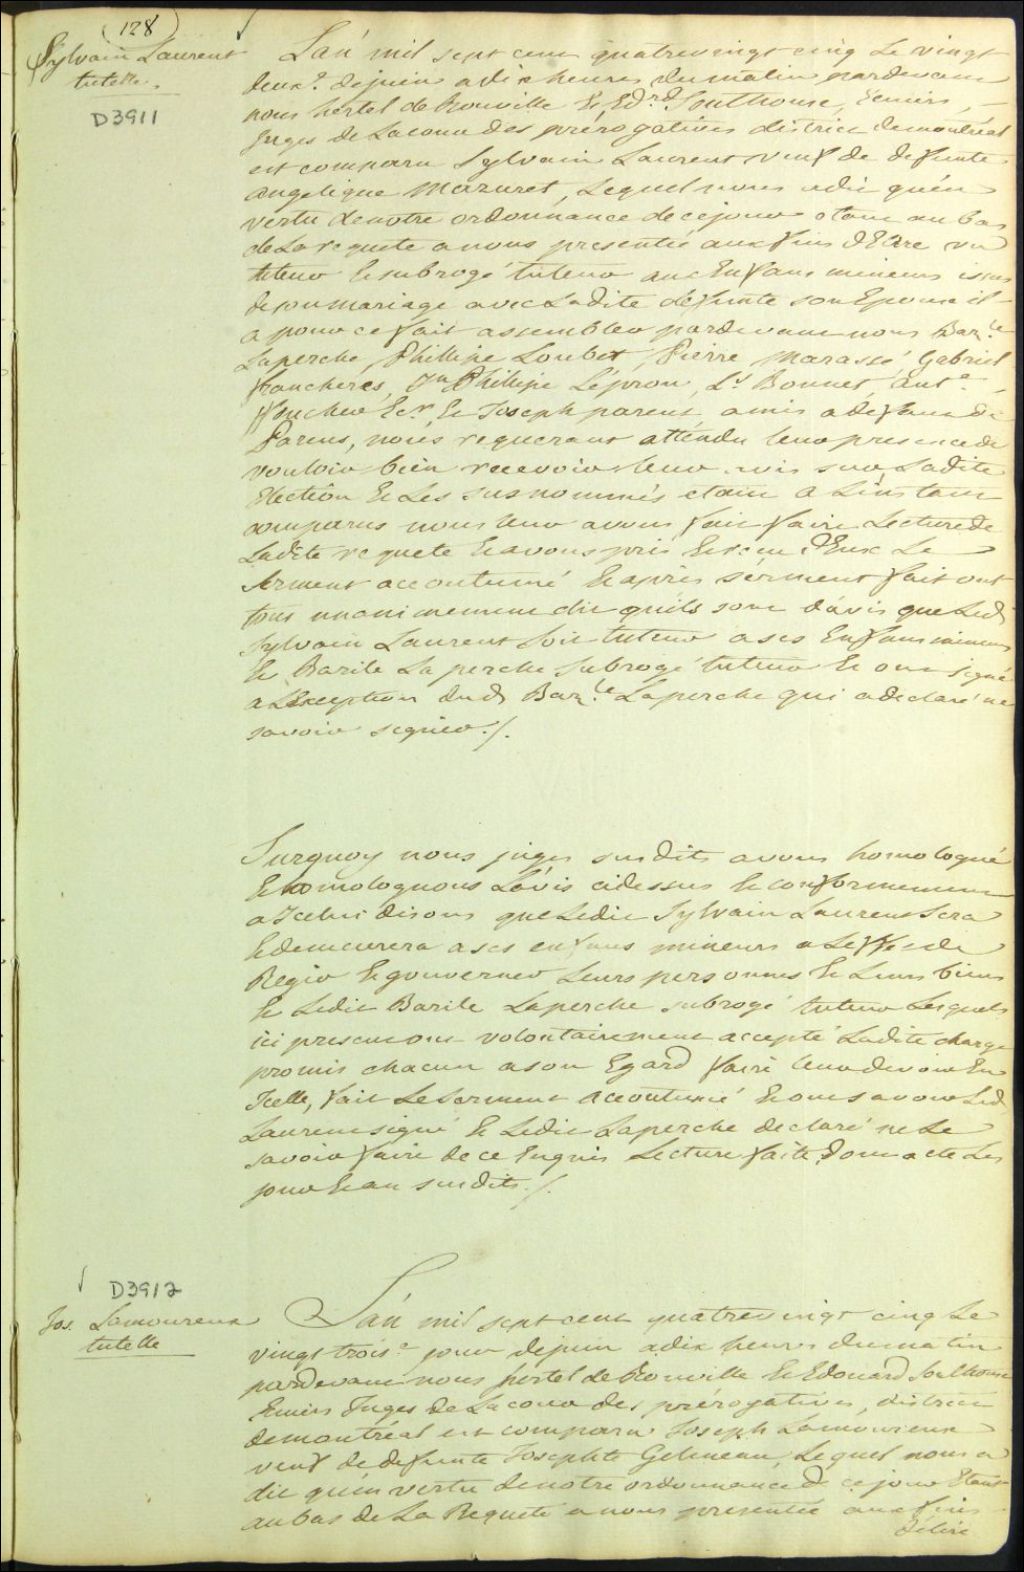 (128)
Sylvain Laurent
tutelle.
D3911
Lan mil sept cent quatrevingt cinq Le vingt
deux.e dejuin adix heures dumatin pardevant
nous hertel de Rouville & Ed.rd Southouse, Ecuiers, —
Juges de Lacour des prérogatives district demontréal
est comparu Sylvain Laurent veuf de defunte
angelique Mazuret, Lequel nous adit quén
vertu denotre ordonnance decejour etant aubas
deLa requete anous presentée aux fins d'Elire un
tuteur & subrogé tuteur aux Enfans mineurs issus
desonmariage avec Ladite defunte son Epouse il
a pour ce fait assembler pardevant nous Baz.le
Laperche, Phillipe Loubet, Pierre Marassé Gabriel
francheres, Jn Phillipe Léprou, Ls Bonnet, ant.e
foucher Ecr. & Joseph parent amis adefaut de
Parens, nous requerant attendu leur presence de
vouloir bien recevoir leur avis sur Ladite
Election & Les susnommés etant a Linstant
comparus nous leur avons fait faire Lecture de
Ladite requete & avons pris & recu d'Eux Le
Serment accoutumé & après serment fait ont
tous unanimement dit quils sont davis que Led.
Sylvain Laurent soit tuteur ases Enfans mineurs
& Bazile Laperche subrogé tuteur & ont signé
a LException dud. Baz.le Laperche qui adeclaré ne
savoir signer ./.
Surquoy nous juges susdits avons homologué
& homologuons Lavis cidessus & conformement
a Icelui disons que Ledit Sylvain Laurent sera
& demeurera ases enfans mineurs a Leffet de
Regir & gouverner Leurs personnes & Leurs biens
& Ledit Bazile Laperche subrogé tuteur Lesquels
ici presens ont volontairement accepté Ladite charge
promis chacun ason Egard faire leur devoir En
Icelle, fait Leserment accoutumé & ont savoir Led.
Laurent signé & Ledit Laperche declaré ne Le
savoir faire de ce Enquis Lecture faite, dont acte Les
jour & an susdits ./.
D3912
Jos. Lamoureux
tutelle
Lan mil sept cent quatrevingt cinq Le
vingt trois.e jour dejuin adix heures dumatin
pardevant nous hertel de Rouville & Edouard Southouse
Ecuiers Juges de Lacour des prérogatives, district
demontréal est comparu Joseph Lamoureux
veuf de defunte Josephte Gelineau, Lequel nous a
dit quén vertu denotre ordonnance d ce jour Etant
aubas de La Requete anous presentée aux fins
délire